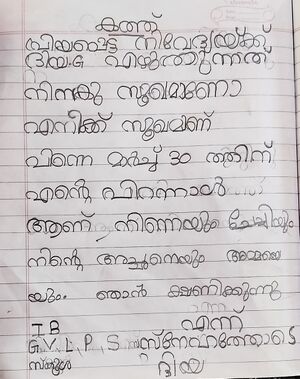 കത്ത്
പ്രിയപ്പെട്ട നിവേദ്യയ്ക്ക്
ദിയ.G എഴുതുന്നത്
നിനക്കു സുഖമാണോ
എനിക്ക് സുഖമാണ്
പിന്നെ മാർച്ച് 30 ത്തിന്
എന്റെ പിറന്നാൾ
ആണ്, നിന്നെയും ചേച്ചിയും
നിന്റെ അച്ഛനെയും അമ്മയെ
യും. ഞാൻ ക്ഷണിക്കുന്നു
എന്ന്
I B
G.V.L.P.S സ്നേഹത്തോടെ
സ്ക്കൂൾ ദിയ